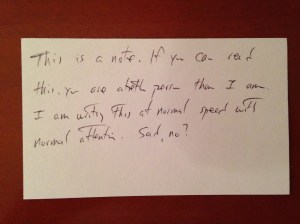 This is a note. If you can read
this, you are a better person than I am.
I am writing this at normal speed with
normal attention. Sad, no?